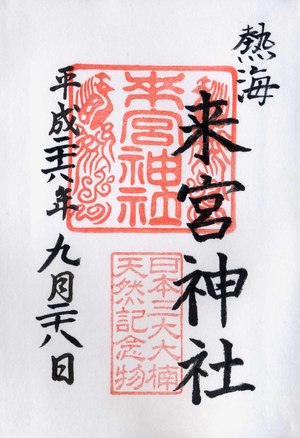 熱海
来宮神社
来宮神社
日本三大大楠
天然記念物
平成二六年九月二八日